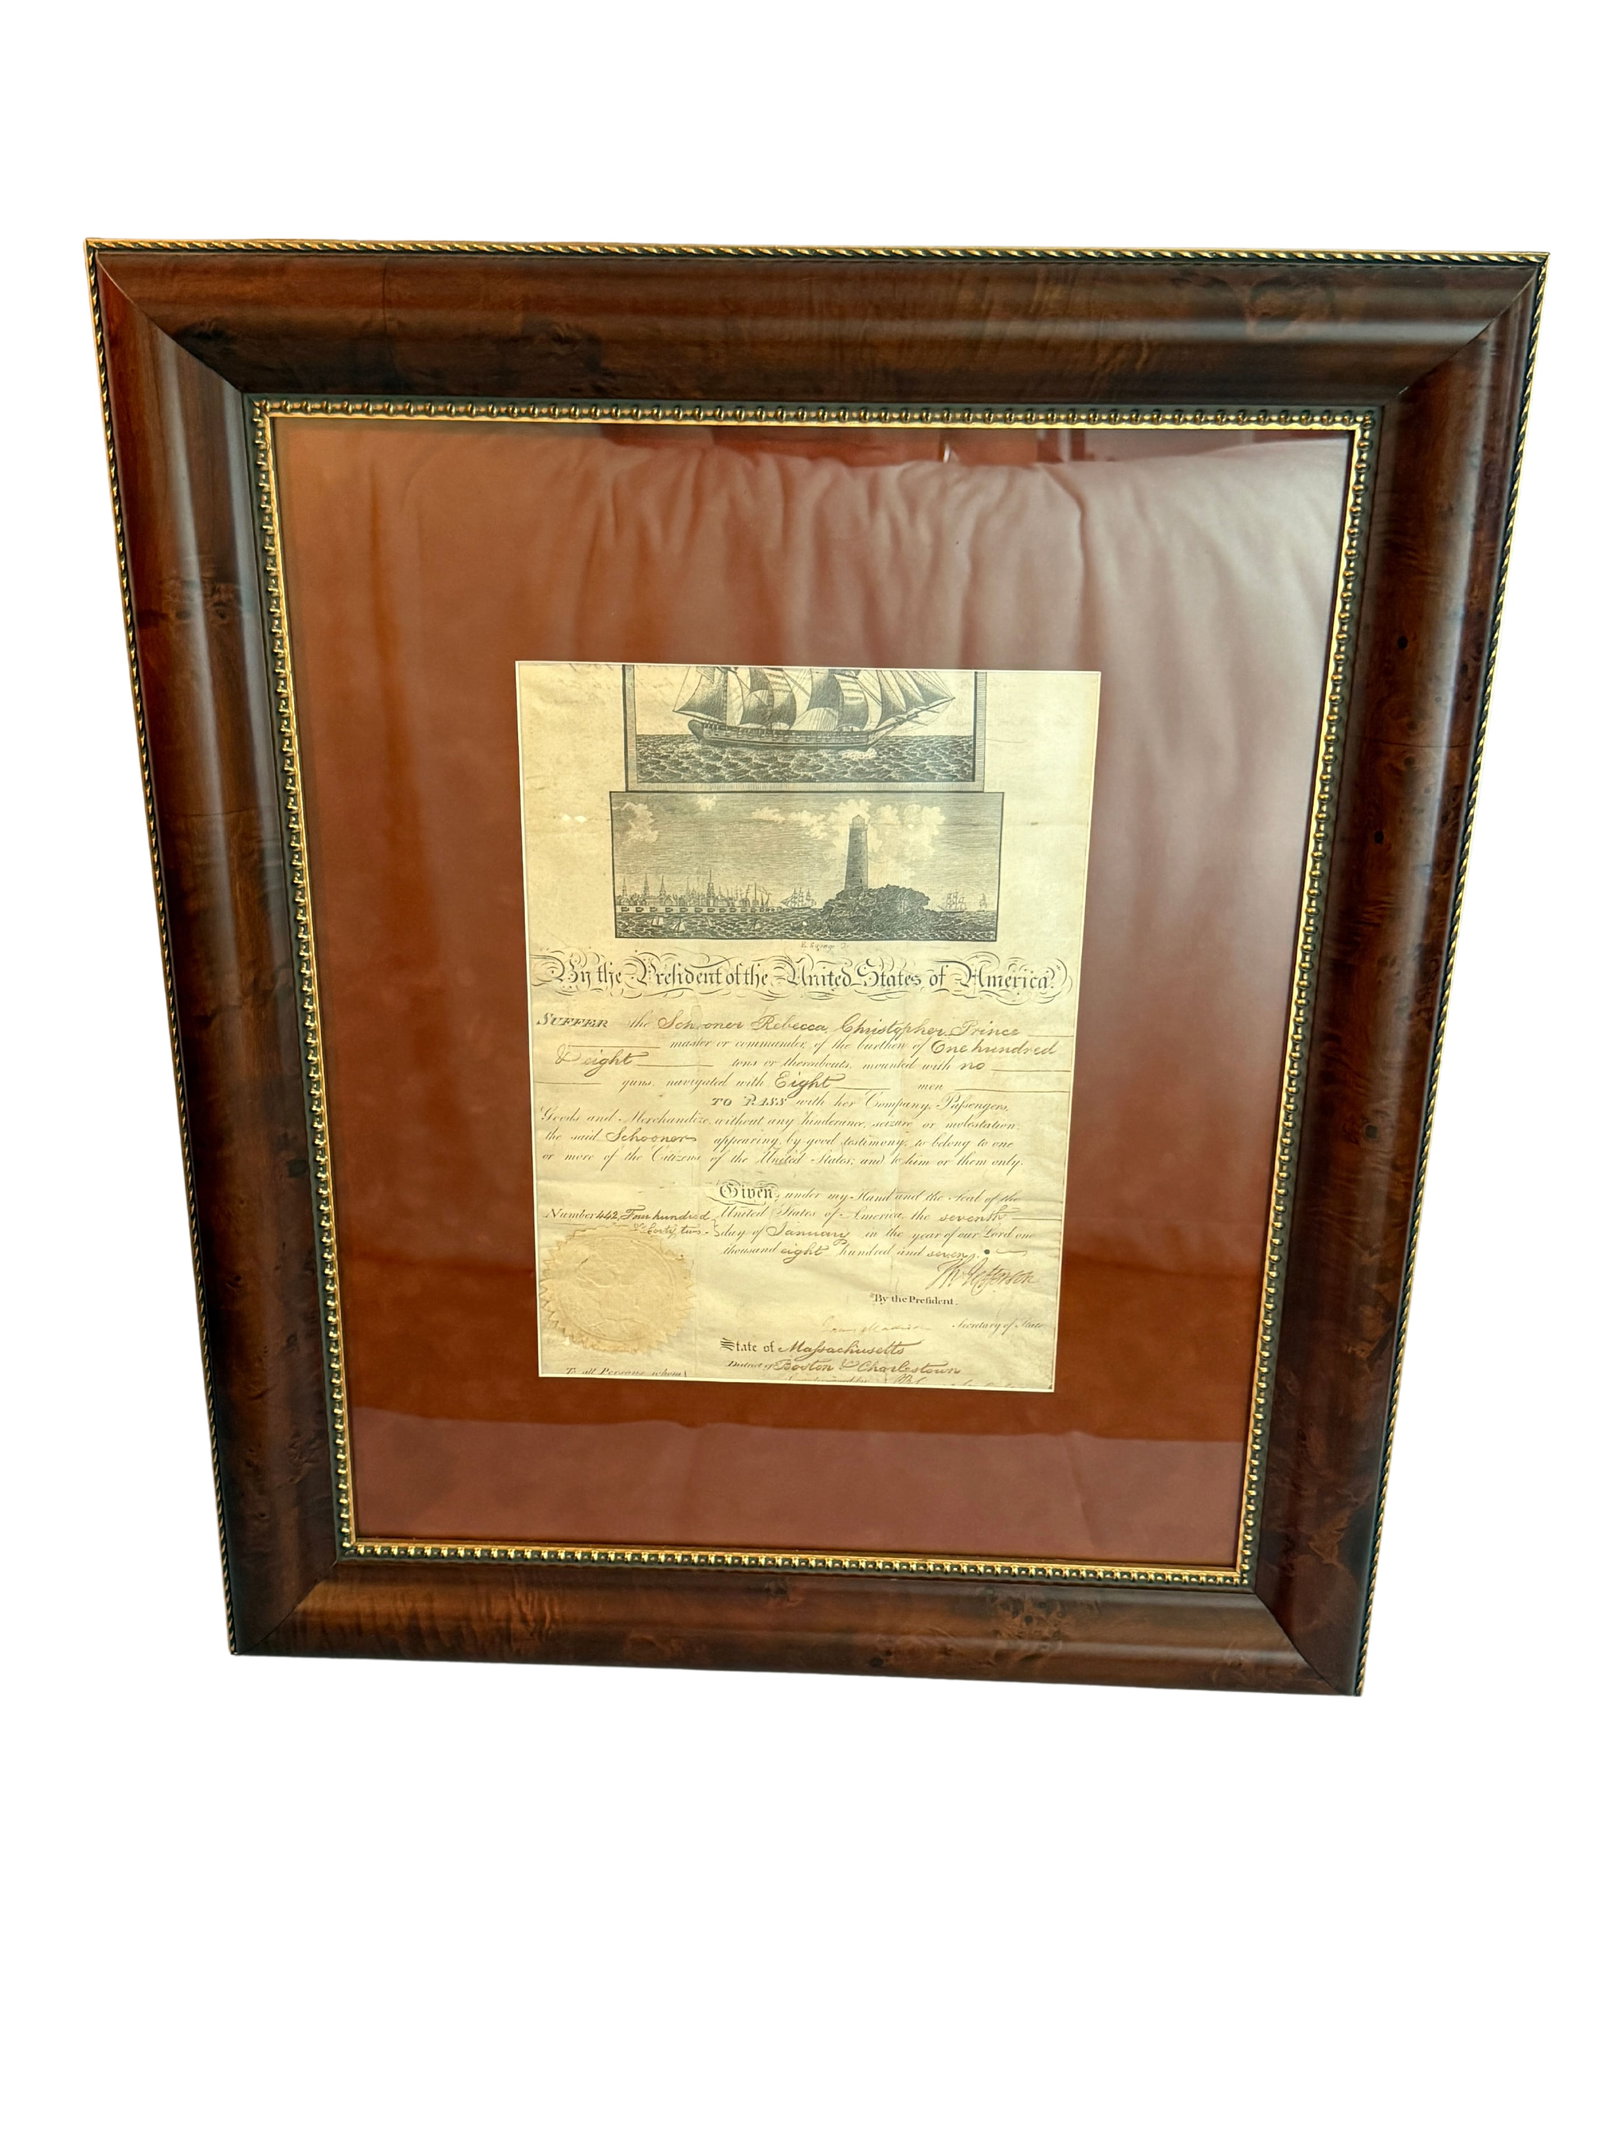 By the President of the United States of America.
SUFFER the Schooner Rebecca, Christopher Prince
master or commander, of the burthen of One hundred
& eight tons or thereabouts, mounted with no
guns, navigated with Eight men
TO PASS with her Company, Passengers,
Goods and Merchandize, without any hinderance, seizure or molestation,
the said Schooner appearing by good testimony, to belong to one
or more of the Citizens of the United States, and to him or them only.
Given, under my Hand and the Seal of the
Number 442, Four hundred United States of America, the seventh
& Forty two day of January in the year of our Lord one
thousand eight hundred and seven.
Th Jefferson
By the President.
James Madison Secretary of State
State of Massachusetts
District of Boston & Charlestown
To all Persons whom